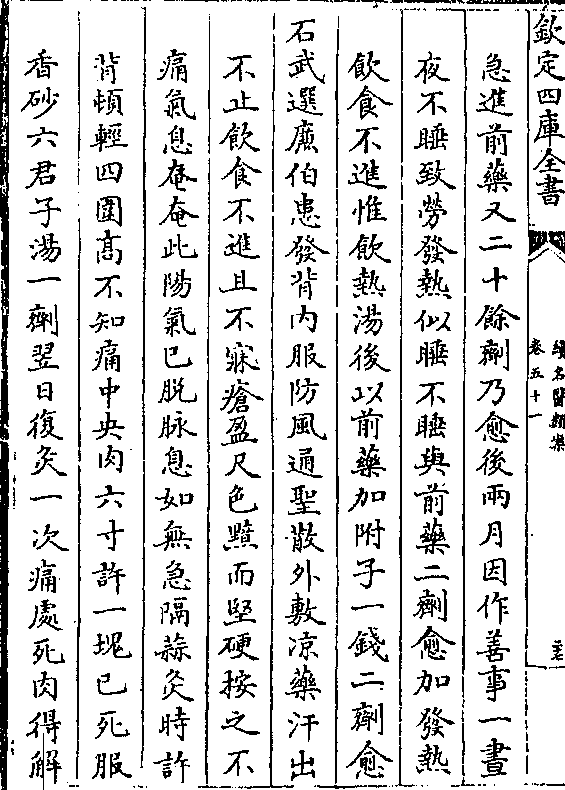 欽定四庫全書
續名醫類案
卷五十一
急進前藥又二十餘劑乃愈後兩月因作善事一晝
夜不睡致勞發熱似睡不睡與前藥二劑愈加發熱
飲食不進惟飲熱湯後以前藥加附子一錢二劑愈
石武選㢘伯患發背内服防風通聖散外敷凉藥汗出
不止飲食不進且不寐瘡盈尺色黯而堅硬按之不
痛氣息奄奄此陽氣已脱脉息如無急隔蒜灸時許
背頓輕四圍髙不知痛中央肉六寸許一塊已死服
香砂六君子湯一劑翌日復灸一次痛處死肉得解